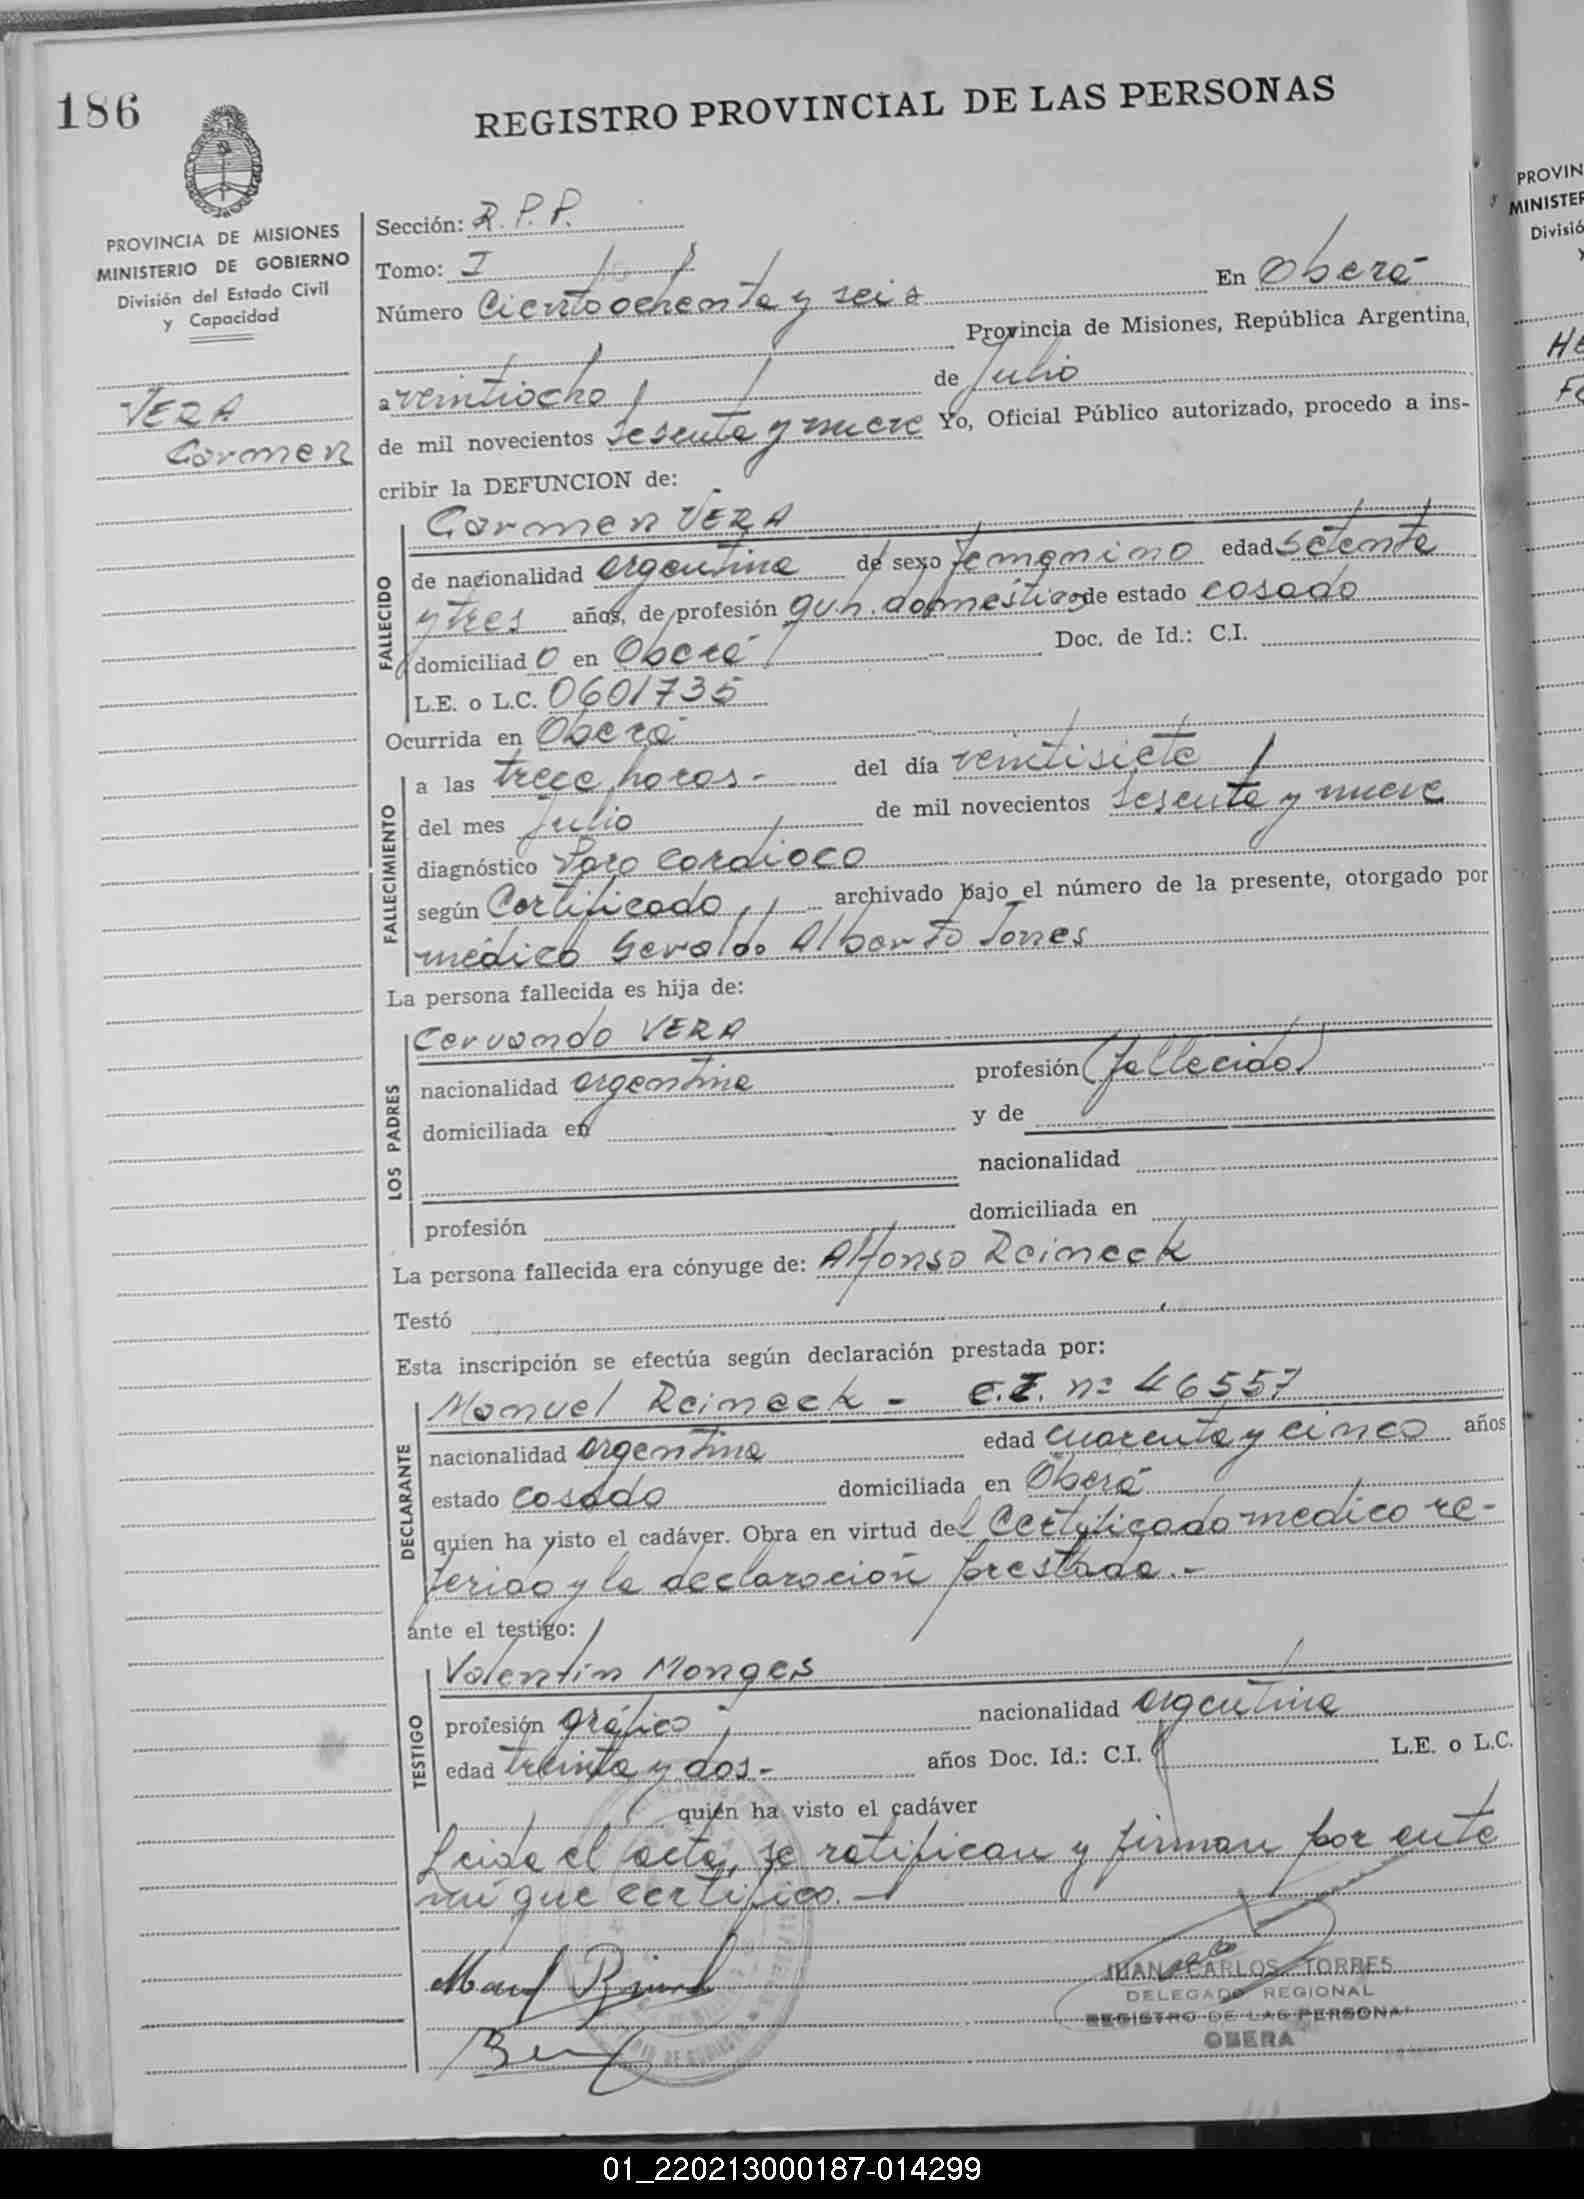 186
REGISTRO PROVINCIAL DE LAS PERSONAS
PROVINCIA DE MISIONES
MINISTERIO DE GOBIERNO
División del Estado Civil
y Capacidad
VERA
Carmen
Sección: R.P.P.
Tomo: I
Número Ciento ochenta y seis En Oberá
Provincia de Misiones, República Argentina,
a veintiocho de Julio
de mil novecientos sesenta y nueve Yo, Oficial Público autorizado, procedo a ins-
cribir la DEFUNCION de:
FALLECIDO
Carmen VERA
de nacionalidad argentina de sexo femenino edad setenta
y tres años, de profesión q.u.h. domésticos de estado casado
domiciliado en Oberá Doc. de Id.: C.I.
L.E. o L.C. 0601735
Ocurrida en Oberá
FALLECIMIENTO
a las trece horas.- del día veintisiete
del mes Julio de mil novecientos sesenta y nueve
diagnóstico Paro cardiaco
según Certificado archivado bajo el número de la presente, otorgado por
médico Geraldo Alberto Torres
La persona fallecida es hija de:
LOS PADRES
Cervando VERA
nacionalidad argentina profesión (fallecido)
domiciliada en y de
nacionalidad
profesión domiciliada en
La persona fallecida era cónyuge de: Alfonso Reineck
Testó
Esta inscripción se efectúa según declaración prestada por:
DECLARANTE
Manuel Reineck - C.I. nº 46557
nacionalidad argentina edad cuarenta y cinco años
estado casado domiciliada en Oberá
quien ha visto el cadáver. Obra en virtud del Certificado médico re-
ferido y la declaración prestada.-
ante el testigo:
TESTIGO
Valentín Monges
profesión gráfico nacionalidad argentina
edad treinta y dos- años Doc. Id.: C.I. L.E. o L.C.
quien ha visto el cadáver
Leida el acta, se ratifican y firman por ante
mí que certifico.-
JUAN CARLOS TORRES
DELEGADO REGIONAL
REGISTRO DE LAS PERSONAS
OBERA
PROVIN
MINISTER
Divisió
y
01_220213000187-014299